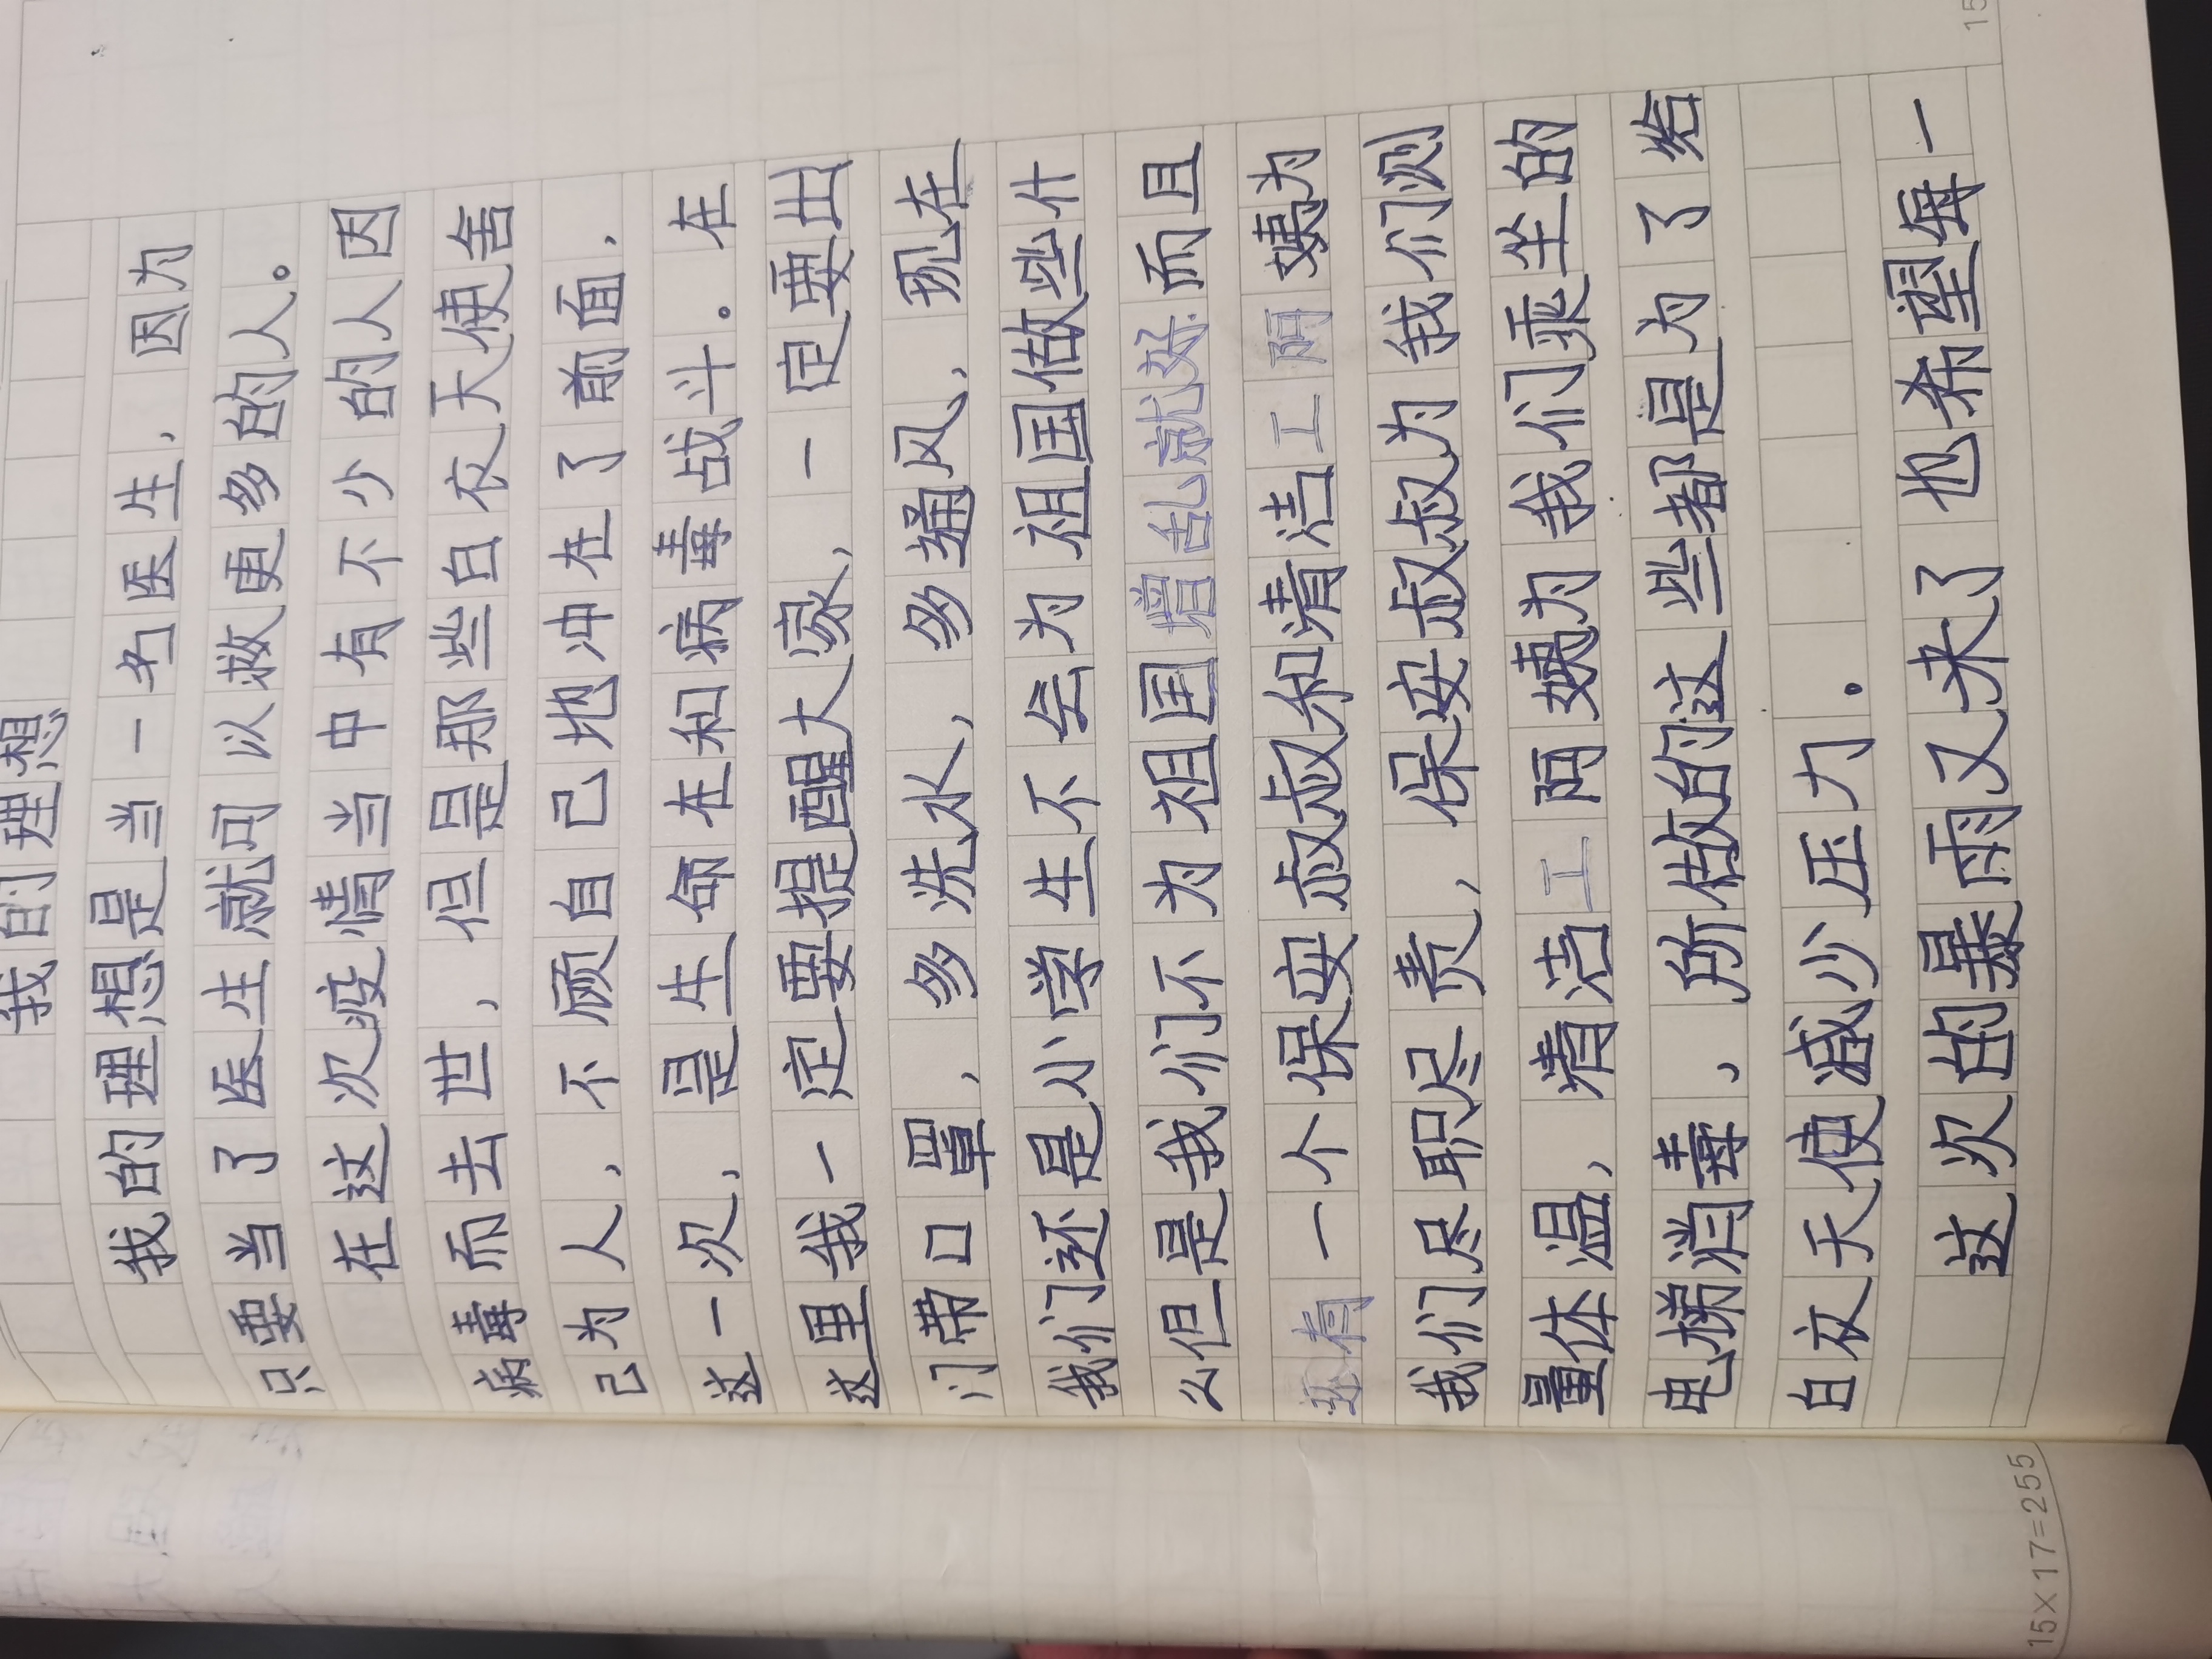 我的理想
我的理想是当一名医生，因为
只要当了医生就可以救更多的人。
在这次疫情当中有不少的人因
病毒而去世，但是那些白衣天使舍
己为人，不顾自己地冲在了前面，
这一次，是生命在和病毒战斗。在
这里我一定要提醒大家，一定要出
门带口罩，多洗水，多通风，现在
我们还是小学生不会为祖国做些什
么但是我们不为祖国增乱就好而且
还有一个保安叔叔和清洁工阿姨为
我们尽职尽责，保安叔叔为我们测
量体温，清洁工阿姨为我们乘坐的
电梯消毒，所做的这些都是为了给
白衣天使减少压力。
这次的暴雨又来了也希望每一
15×17=255
15